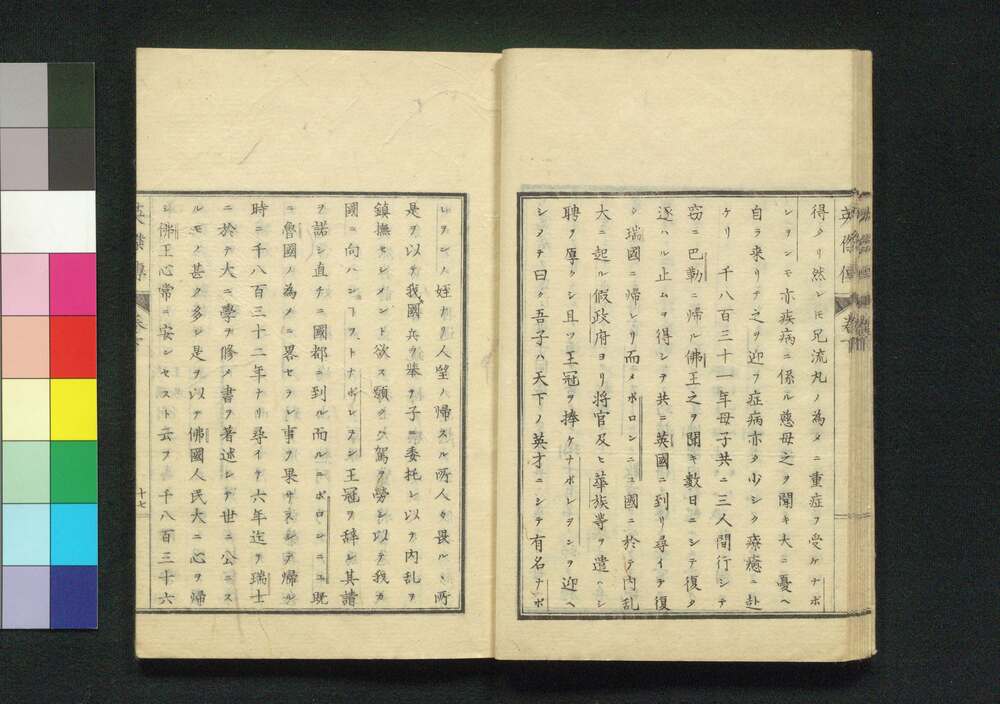 得タリ然レモ兄流丸ノ為メニ重症ヲ受ケナポ
レヲンモ亦疾病ニ係ル慈母之ヲ聞キ大ニ憂ヘ
自ラ来リテ之ヲ迎フ症病亦タ少シク療癒ニ赴
ケリ 千八百三十一年母子共ニ三人間行シテ
窃ニ巴勒ニ帰ル佛王之ヲ聞キ數日ニシテ復タ
逐ハル止ムヲ得ンテ共ニ英國ニ到リ尋イテ復
瑞國ニ帰レリ而メポロンニユ國ニ於テ内乱
大ニ起ル假政府ヨリ将官及ヒ華族等ヲ遣ヘシ
聘ヲ厚クシ且ツ王冠ヲ捧ケナポレヲンヲ迎ヘ
シノチ曰ク吾子ハ天下ノ英才ニシテ有名ナポ
レヲンノ姪ナリ人望ノ帰スル所人々畏ルヽ所
是ヲ以テ我國兵ヲ挙ケ子ニ委托シ以テ内乱ヲ
鎮撫セシメント欲ス願クハ駕ヲ勞シ以テ我カ
國ニ向ハンヿヲトナポレヲン王冠ヲ辞シ其請
ヲ諾シ直チニ國都ニ到ル而ルニポロンニユ既
ニ魯國ノ為メニ畧セラレ事ヲ果サスシテ帰ル
時ニ千八百三十二年ナリ尋イテ六年迄ヲ瑞士
ニ於テ大ニ學ヲ修メ書ヲ著述シテ世ニ公ニス
ルモノ甚タ多シ是ヲ以テ佛國人民大ニ心ヲ帰
シ佛王心常ニ安ンセスト云フ 千八百三十六
十七